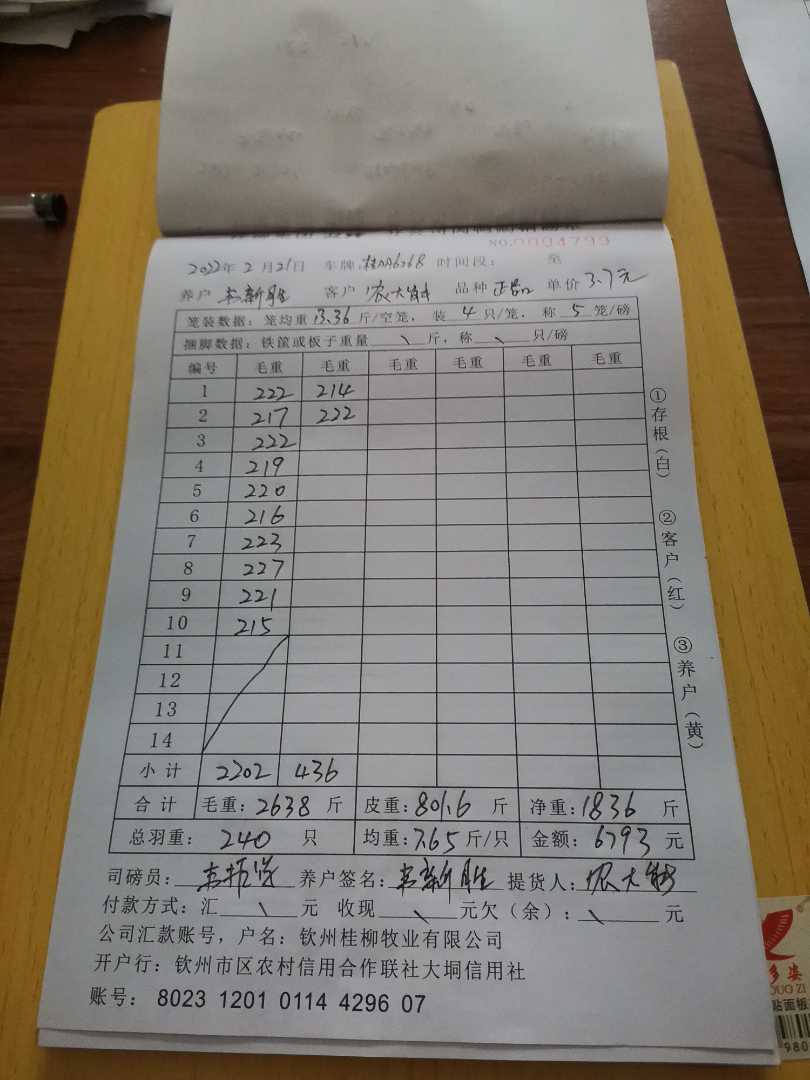 NO.0094799
2022年 2 月 21日 车牌:桂AA6268 时间段: 至
养户 韦新胜 客户 农大能 品种 正品 单价 3.7元
笼装数据: 笼均重 13.36 斤/空笼, 装 4 只/笼, 称 5 笼/磅
捆脚数据: 铁筐或板子重量 \ 斤, 称 \ 只/磅
编号 毛重 毛重 毛重 毛重 毛重 毛重
1 222 214
2 217 222
3 222
4 219
5 220
6 216
7 223
8 227
9 221
10 215
11
12
13
14
小计 2202 436
合计 毛重:2638 斤 皮重:801.6 斤 净重:1836 斤
总羽重: 240 只 均重:7.65 斤/只 金额: 6793 元
司磅员: 养户签名:韦新胜 提货人:农大能
付款方式: 汇 \ 元 收现 \ 元欠(余): \ 元
公司汇款账号, 户名: 钦州桂柳牧业有限公司
开户行: 钦州市区农村信用合作联社大垌信用社
账号: 8023 1201 0114 4296 07
①存根(白)
②客户(红)
③养户(黄)
多姿
DUO ZI
贴面板
980